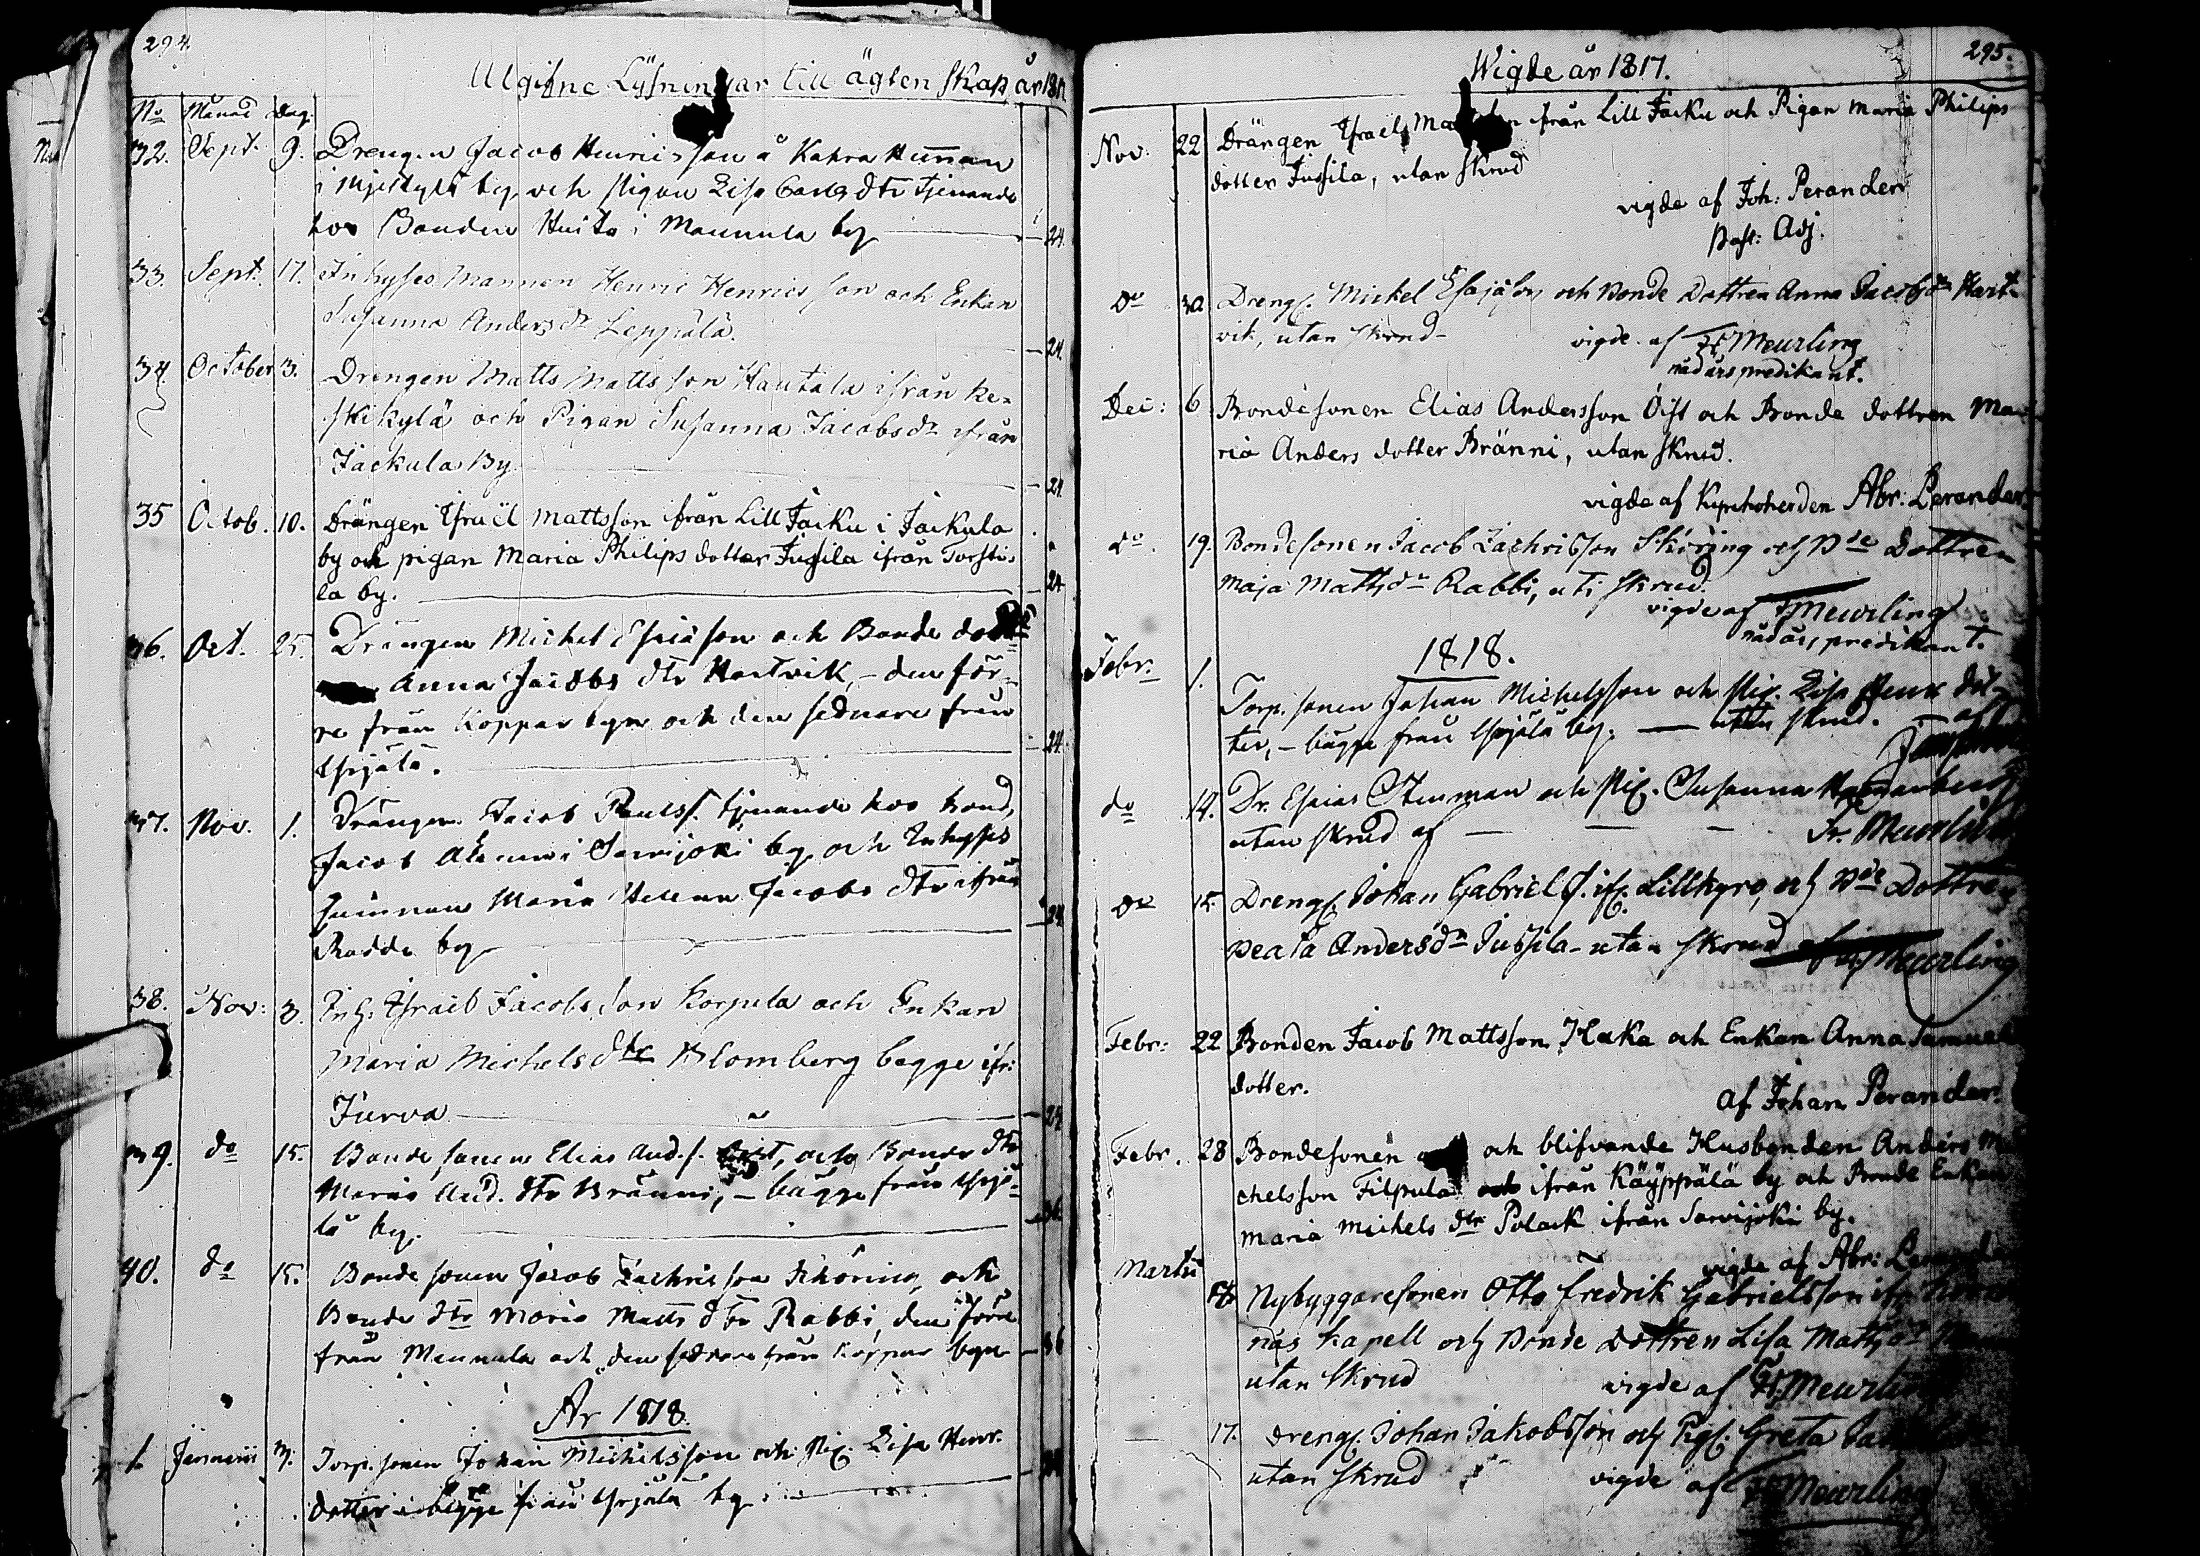 294.
Utgifne Lysningar till ägtenskap år 1817
No Månad Dag.
32. Sept. 9. Drengen Jacob Henricsson å Kahra Hunnan
i Mjestylä by, och Pigan Lisa Carls dtr tjenande
hos Bonden Huita i Mannula by 24.
33. Sept. 17. Inhyses Mannen Henric Henricsson och Enkan
Susanna Andersdr Leppälä. 24.
34. October 3. Drengen Matts Mattsson Hautala ifrån Ke-
skikylä och Pigan Susanna Jacobsdr ifrån
Jackula By. 24
35 Octob. 10. Drängen Israël Mattsson från Lill Jacku i Jackula
by och pigan Maria Philips dotter Jussila ifrån Torsti-
la by. 24
36. Oct. 25. Drengen Michel Esaiasson och Bonde
Anna Jacobs dtr Hartvik, - den för-
re från Koppar byn och den sednare från
24.
37. Nov. 1. Drängen Jacob Paulss. tjenande hos bond.
Jacob i Sarvijoki by och Inhyses
qvinnan Maria Helena Jacobs dtr ifrån
Rodda by 24
38. Nov: 3. Inh: Israël Jacobsson Korpela och Enkan
Maria Michels dtr Blomberg begge ifr:
Jurva 24
39. do 15. Bonde sonen Elias And.s. och Bonde dtr
Maria And. dtr Bränni, - bägge från
lä by.
40. do 15. Bonde sonen Jacob Zachrisson Sköring och
Bonde dtr Maria Matts dtr Rabbi, den förre
från Mannula och den sednare från Koppar byn 36
År 1818.
1. Januarii 3. Torp. sonen Johan Michelsson och Pig. Lisa Henr.
dotter bägge från by
295.
Wigde år 1817.
Nov: 22 Drängen Israël från Lill Jacku och Pigan Maria Philips
dotter Jussila, utan Skrud
vigde af Joh: Perander
Past: Adj.
Do 30 Dreng. Michel Esajasson och Bonde Dottren Anna Jacobsdr Hart-
vik, utan skrud- vigde af Fr Meurling
nådårspredikant.
Dec: 6 Bondesonen Elias Andersson Öist och Bonde dottren Ma-
ria Anders dotter Bränni, utan Skrud.
vigde af Kyrckoherden Abr: Perander.
do. 19. Bondesonen Jacob Zachrisson Sköring och Bde Dottren
Maja Mattsdr Rabbi, uti skrud.
vigde af Fr Meurling
nådårs predikant.
1818.
Febr. 1. Torp. sonen Johan Michelsson och Pig. Lisa Henr dot-
ter, - bägge från by. utan skrud. - af
do 14. Dr. Esaias Stenman och Pig. Susanna
utan skrud af Fr. Meurling
Do 15 Dreng. Johan Gabriel S. ifr. Lillkyro, och Bde Dottren
Beata Andersdr Jussila - utan skrud af Fr Meurling
Febr: 22 Bonden Jacob Mattsson Kaka och Enkan Anna Samuels
dotter.
af Johan Perander.
Febr. 28 Bondesonen och blifvande Husbonden Anders Mi-
chelsson Filpula ifrån Käyppälä by och Bonde Enkan
Maria Michels dtr Polack ifrån Sarvijoki by.
vigde af Abr: Perander
Martii Nybyggaresonen Otto Fredrik Gabrielsson ifr.
näs kapell och Bonde Dottren Lisa Mattsdr
utan Skrud vigde af Fr. Meurling
17. Dreng. Johan Jakobsson och Pig. Greta
utan Skrud vigde af Fr Meurling